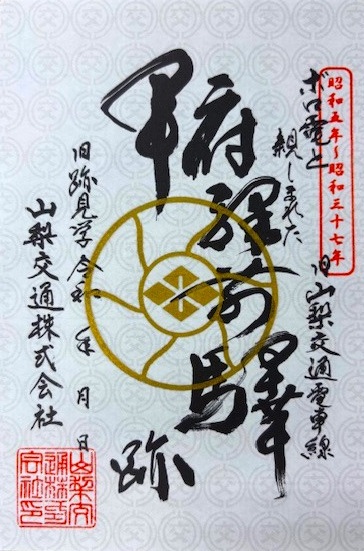 昭和五年～昭和三十七年
ボロ電と
親しまれた
旧山梨交通電車線
甲府驛前驛跡
旧跡見学 令和 年 月 日
山梨交通株式会社
山梨交
通株式
会社印